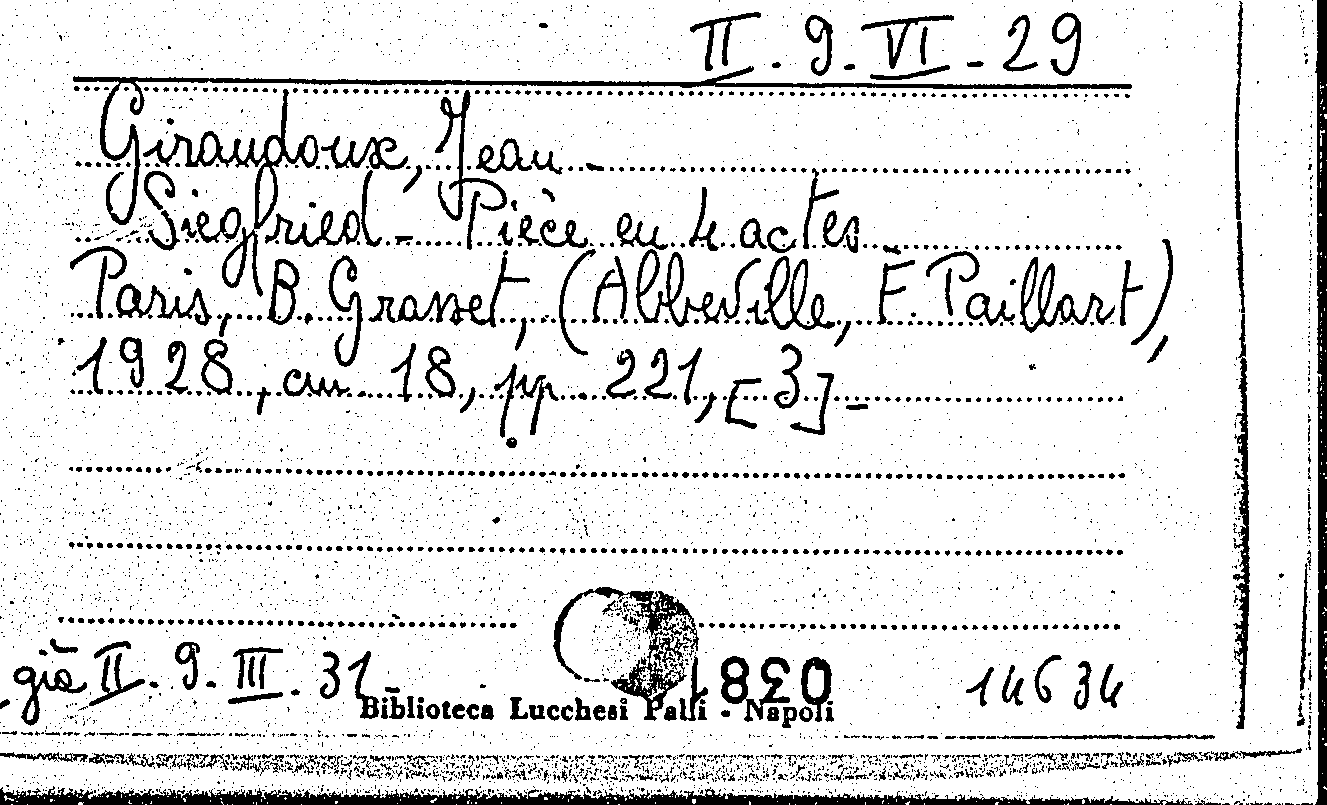 II. 9. VI. 29
Giraudoux, Jean -
Siegfried - Pièce en 4 actes
Paris, B. Grasset, (Abbeville, F. Paillart),
1928, cm. 18, pp. 221, [3] -
già II. 9. III. 31
14634
Biblioteca Lucchesi Palli - Napoli